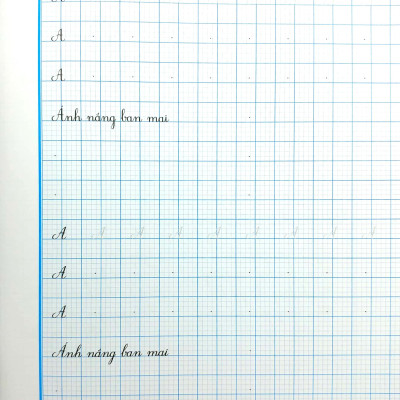 A
A
Ánh nắng ban mai
A A A A A A A A A
A
A
Ánh nắng ban mai